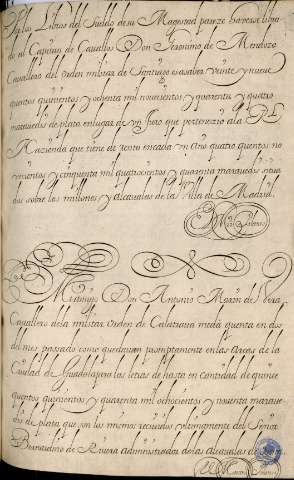 los Libros del Sueldo de su Magestad pareze haverse libra
do al Capitan de Cavallos Don Geronimo de Mendoza
Cavallero del orden militar de Santiago escasabra veinte y nueve
quentos quinientos y ochenta mil novecientos y quarenta y quatro
maravedis de plata en lugar de un Juro que pertenezio a la Rl
Hazienda que tiene de renta encada un Año quatro quentos no
vecientos y cinquenta mil quatrocientos y quarenta maravedis situa
dos sobre los millones y alcavalas de la Villa de Madrid
Mestituyo Don Antonio Marin de
Cavallero de la militar orden de Calatrava media quenta en dos
del mes passado como quedavan promptamente en las Arcas de la
Ciudad de Guadalaxara las letras de hasta en cantidad de quinze
quentos quinientos y quarenta mil ochocientos y noventa marave
dis de plata que son los mesmos recevidos ultimamente del Señor
Bernardino de Rivera Administrador de las alcavalas de